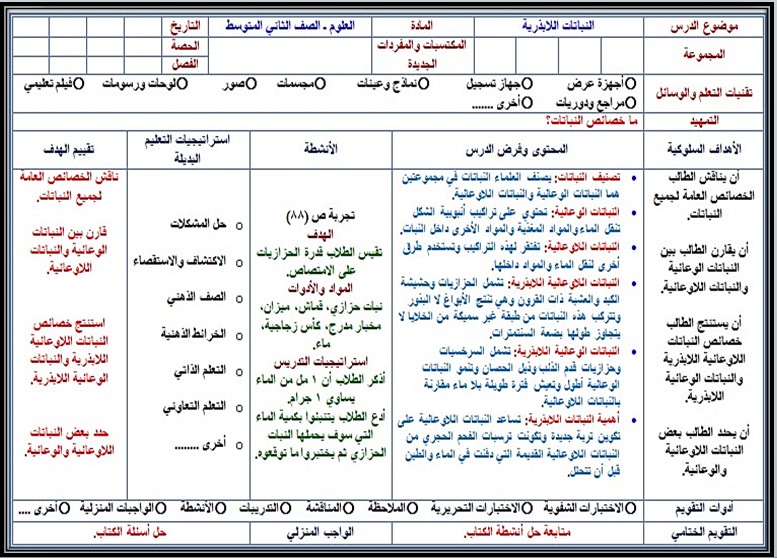 موضوع الدرس
النباتات اللابذرية
المادة
العلوم ـ الصف الثاني المتوسط
التاريخ
المجموعة
المكتسبات والمفردات
الجديدة
الحصة
الفصل
تقنيات التعلم والوسائل
Oأجهزة عرض Oجهاز تسجيل Oنماذج وعينات Oمجسمات Oصور Oلوحات ورسومات Oفيلم تعليمي
Oمراجع ودوريات Oأخرى .......
التمهيد
ما خصائص النباتات؟
الأهداف السلوكية
المحتوى وفرض الدرس
الأنشطة
استراتيجيات التعليم
البديلة
تقييم الهدف
أن يناقش الطالب
الخصائص العامة لجميع
النباتات.
أن يقارن الطالب بين
النباتات الوعائية
والنباتات اللاوعائية.
أن يستنتج الطالب
خصائص النباتات
اللاوعائية اللابذرية
والنباتات الوعائية
اللابذرية.
أن يحدد الطالب بعض
النباتات اللاوعائية
والوعائية.
• تصنيف النباتات: يصنف العلماء النباتات في مجموعتين
هما النباتات الوعائية والنباتات اللاوعائية.
• النباتات الوعائية: تحتوي على تراكيب أنبوبية الشكل
تنقل الماء والمواد المغذية والمواد الأخرى داخل النبات.
• النباتات اللاوعائية: تفتقر لهذه التراكيب وتستخدم طرق
أخرى لنقل الماء والمواد داخلها.
• النباتات اللاوعائية اللابذرية: تشمل الحزازيات وحشيشة
الكبد والعشبة ذات القرون وهي تنتج الأبواغ لا البذور
وتتركب هذه النباتات من طبقة غير سميكة من الخلايا لا
يتجاوز طولها بضعة سنتمترات.
• النباتات الوعائية اللابذرية: تشمل السرخسيات
وحزازيات قدم الذئب وذيل الحصان وتنمو النباتات
الوعائية أطول وتعيش فترة طويلة بلا ماء مقارنة
بالنباتات اللاوعائية.
• أهمية النباتات اللابذرية: تساعد النباتات اللاوعائية على
تكوين تربة جديدة وتكونت ترسبات الفحم الحجري من
النباتات اللاوعائية القديمة التي دفنت في الماء والطين
قبل أن تتحلل.
تجربة ص (٨٨)
الهدف
تقيس الطلاب قدرة الحزازيات
على الامتصاص.
المواد والأدوات
نبات حزازي، قماش، ميزان،
مخبار مدرج، كأس زجاجية،
ماء.
استراتيجيات التدريس
أذكر الطلاب أن ١ مل من الماء
يساوي ١ جرام.
أدع الطلاب يتنبئوا بكمية الماء
التي سوف يحملها النبات
الحزازي ثم يختبروا ما توقعوه.
o حل المشكلات
o الاكتشاف والاستقصاء
o الصف الذهني
o الخرائط الذهنية
o التعلم الذاتي
o التعلم التعاوني
o أخرى ........
ناقش الخصائص العامة
لجميع النباتات.
قارن بين النباتات
الوعائية والنباتات
اللاوعائية.
استنتج خصائص
النباتات اللاوعائية
اللابذرية والنباتات
الوعائية اللابذرية.
حدد بعض النباتات
اللاوعائية والوعائية.
أدوات التقويم
Oالاختبارات الشفوية Oالاختبارات التحريرية Oالملاحظة Oالمناقشة Oالتدريبات Oالأنشطة Oالواجبات المنزلية Oأخرى ....
التقويم الختامي
متابعة حل أنشطة الكتاب.
الواجب المنزلي
حل أسئلة الكتاب.